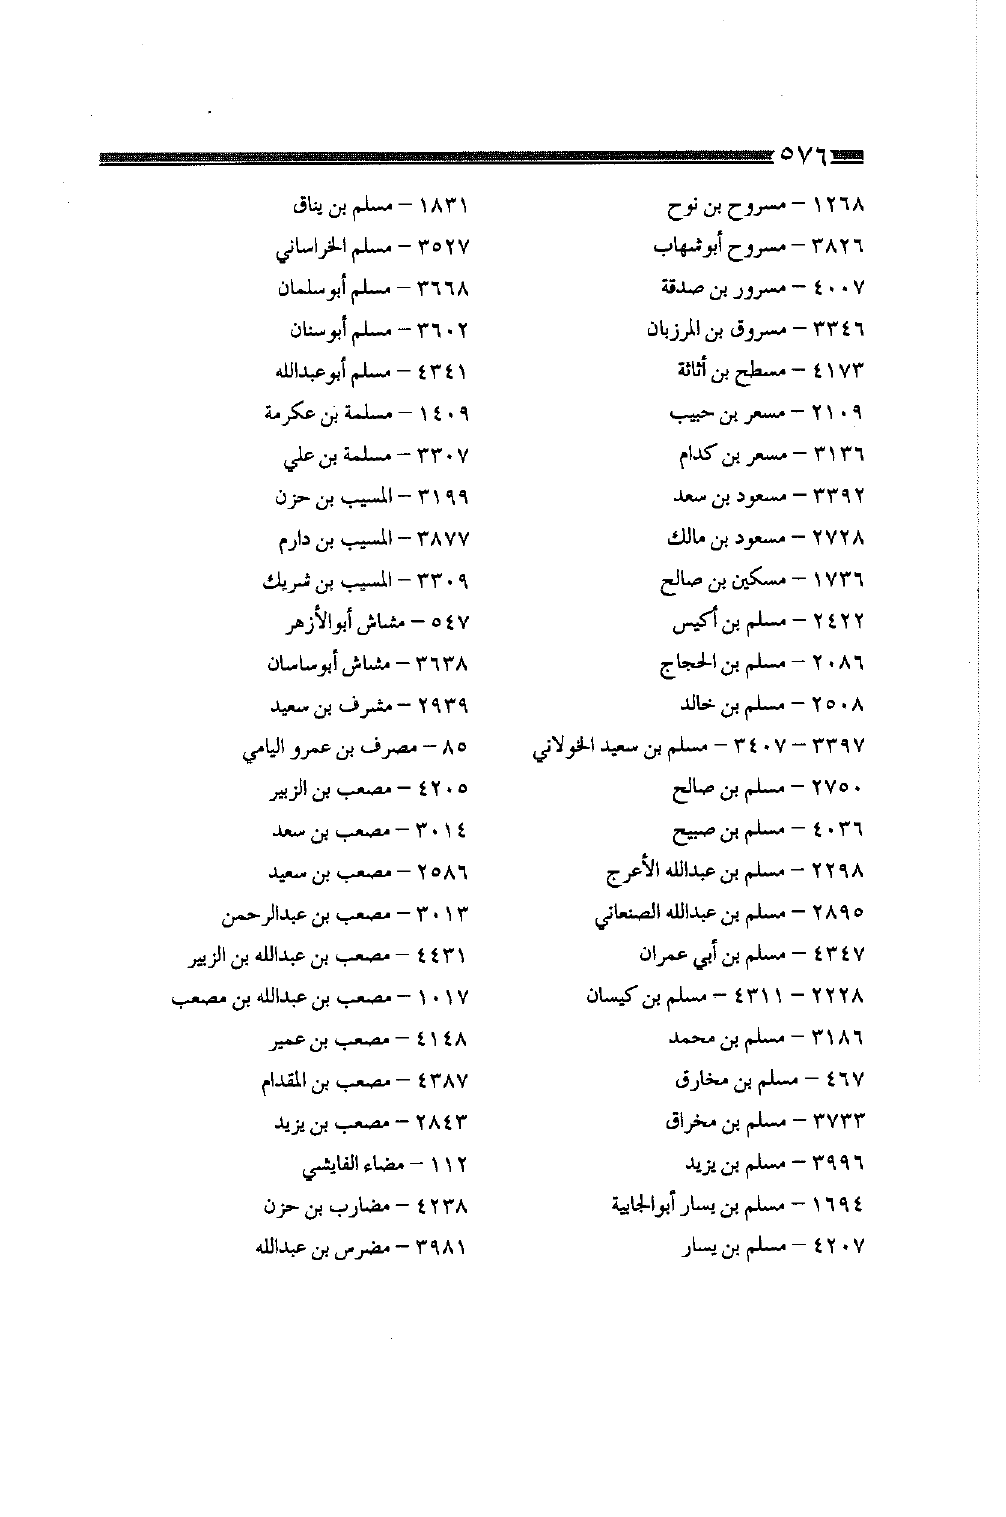 ٥٧٦
١٢٦٨ – مسروح بن نوح
٣٨٢٦ – مسروح أبوشهاب
٤٠٠٧ – مسرور بن صدقة
٣٣٤٦ – مسروق بن المرزبان
٤١٧٣ – مسطح بن أثاثة
٢١٠٩ – مسعر بن حبيب
٣١٣٦ – مسعر بن كدام
٣٣٩٢ – مسعود بن سعد
٢٧٢٨ – مسعود بن مالك
١٧٣٦ – مسكين بن صالح
٢٤٢٢ – مسلم بن أكيس
٢٠٨٦ – مسلم بن الحجاج
٢٥٠٨ – مسلم بن خالد
٣٣٩٧ – ٣٤٠٧ – مسلم بن سعيد الخولاني
٢٧٥٠ – مسلم بن صالح
٤٠٣٦ – مسلم بن صبيح
٢٢٩٨ – مسلم بن عبدالله الأعرج
٢٨٩٥ – مسلم بن عبدالله الصنعاني
٤٣٤٧ – مسلم بن أبي عمران
٢٢٢٨ – ٤٣١١ – مسلم بن كيسان
٣١٨٦ – مسلم بن محمد
٤٦٧ – مسلم بن مخارق
٣٧٣٣ – مسلم بن مخراق
٣٩٩٦ – مسلم بن يزيد
١٦٩٤ – مسلم بن يسار أبوالجابية
٤٢٠٧ – مسلم بن يسار
١٨٣١ – مسلم بن يناق
٣٥٢٧ – مسلم الخراساني
٣٦٦٨ – مسلم أبوسلمان
٣٦٠٢ – مسلم أبوسنان
٤٣٤١ – مسلم أبوعبدالله
١٤٠٩ – مسلمة بن عكرمة
٣٣٠٧ – مسلمة بن علي
٣١٩٩ – المسيب بن حزن
٣٨٧٧ – المسيب بن دارم
٣٣٠٩ – المسيب بن شريك
٥٤٧ – مشاش أبوالأزهر
٣٦٣٨ – مشاش أبوساسان
٢٩٣٩ – مشرف بن سعيد
٨٥ – مصرف بن عمرو اليامي
٤٢٠٥ – مصعب بن الزبير
٣٠١٤ – مصعب بن سعد
٢٥٨٦ – مصعب بن سعيد
٣٠١٣ – مصعب بن عبدالرحمن
٤٤٣١ – مصعب بن عبدالله بن الزبير
١٠١٧ – مصعب بن عبدالله بن مصعب
٤١٤٨ – مصعب بن عمير
٤٣٨٧ – مصعب بن المقدام
٢٨٤٣ – مصعب بن يزيد
١١٢ – مضاء الفايشي
٤٢٣٨ – مضارب بن حزن
٣٩٨١ – مضرس بن عبدالله